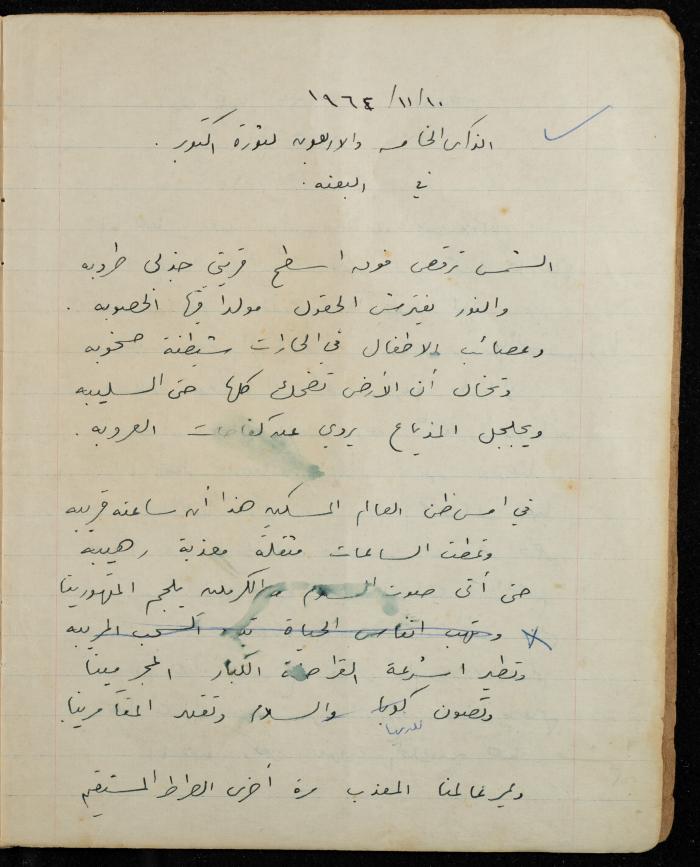 ١٩٦٤/١١/١٠
الذكرى الخامسه والاربعون لثورة اكتوبر .
في البعنه .
الشمس ترقص فوق اسطح قريتي جذلى طروبه
والنور يفترش الحقول مولداً فيها الخصوبه .
وعصائب الاطفال في الحارات شيطنة صخوبه
وتخال أن الأرض تضحك كلها حتى السليبه
ويجلجل المذياع يروي عن كفاحات العروبه .
في امس ظن العالم المسكين هذا أن ساعته قريبه
وتمطت الساعات مثقلة معذبة رهيبه
حتى أتى صوت السلام من الكرملين يلجم المتهورينا
وتهب انفاس الحياة السحب المريبه
وتطير اشرعة القراصنة الكبار المجرمينا
وتصون كوبا والسلام وتفند المقامرينا
ويمر عالمنا المعذب مرة أخرى الصراط المستقيم